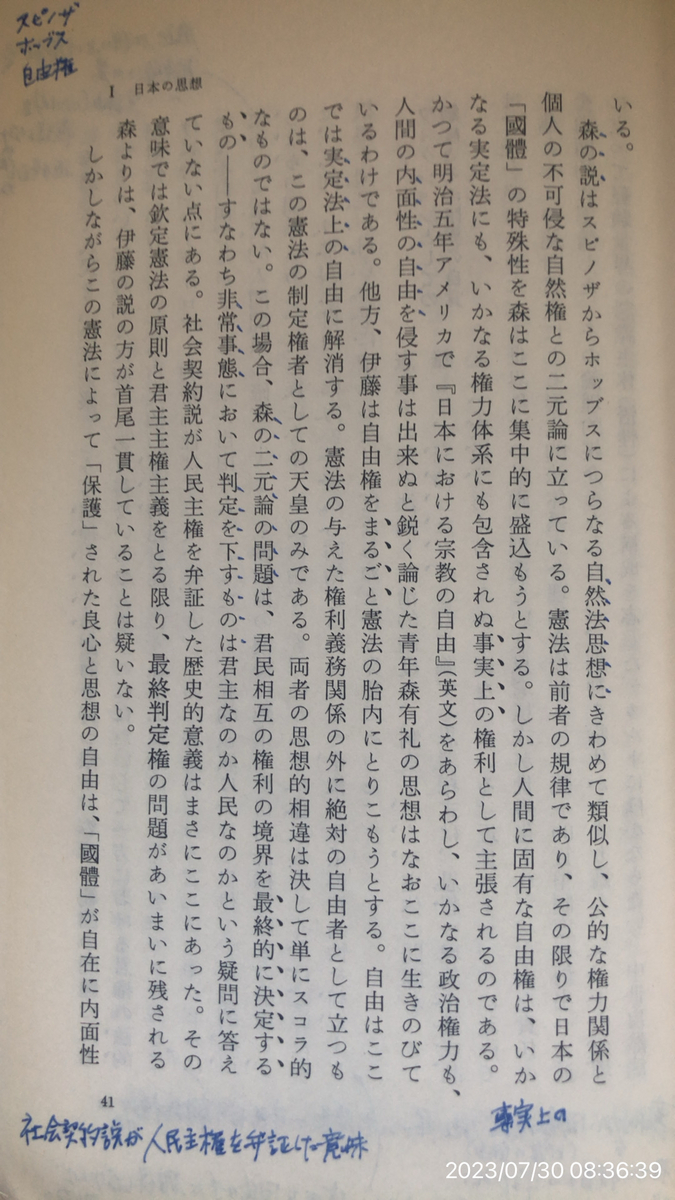 スピノザ
ホッブス
自由権
I 日本の思想
いる。
森の説はスピノザからホッブスにつらなる自然法思想にきわめて類似し、公的な権力関係と
個人の不可侵な自然権との二元論に立っている。憲法は前者の規律であり、その限りで日本の
「國體」の特殊性を森はここに集中的に盛込もうとする。しかし人間に固有な自由権は、いか
なる実定法にも、いかなる権力体系にも包含されぬ事実上の権利として主張されるのである。
かつて明治五年アメリカで『日本における宗教の自由』(英文)をあらわし、いかなる政治権力も、
人間の内面性の自由を侵す事は出来ぬと鋭く論じた青年森有礼の思想はなおここに生きのびて
いるわけである。他方、伊藤は自由権をまるごと憲法の胎内にとりこもうとする。自由はここ
では実定法上の自由に解消する。憲法の与えた権利義務関係の外に絶対の自由者として立つも
のは、この憲法の制定権者としての天皇のみである。両者の思想的相違は決して単にスコラ的
なものではない。この場合、森の二元論の問題は、君民相互の権利の境界を最終的に決定する
もの――すなわち非常事態において判定を下すものは君主なのか人民なのかという疑問に答え
ていない点にある。社会契約説が人民主権を弁証した歴史的意義はまさにここにあった。その
意味では欽定憲法の原則と君主主権主義をとる限り、最終判定権の問題があいまいに残される
森よりは、伊藤の説の方が首尾一貫していることは疑いない。
しかしながらこの憲法によって「保護」された良心と思想の自由は、「國體」が自在に内面性
41
事実上の
社会契約説が人民主権を弁証した意味
2023/07/30 08:36:39